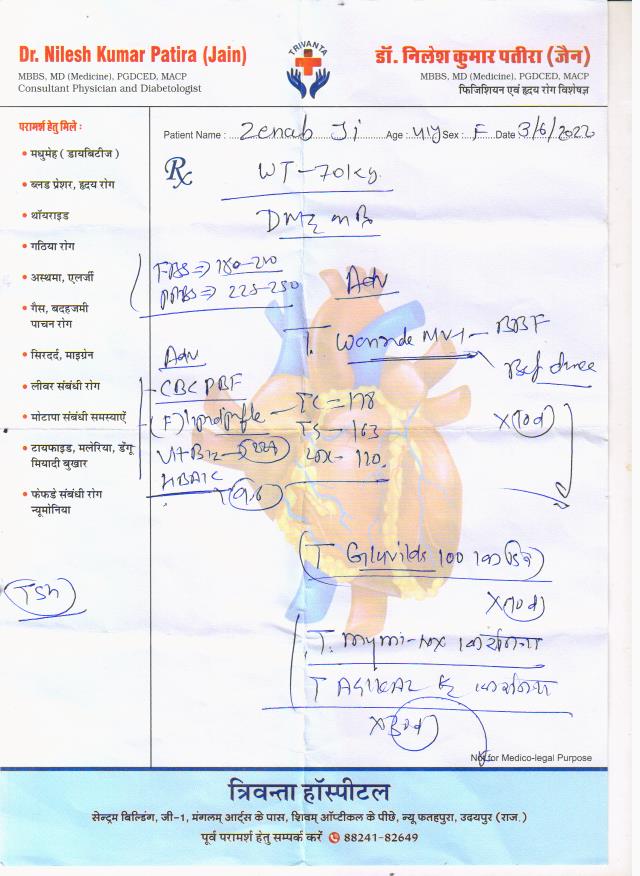 Dr. Nilesh Kumar Patira (Jain)
MBBS, MD (Medicine), PGDCED, MACP
Consultant Physician and Diabetologist
TRIVANTA
डॉ. निलेश कुमार पतीरा (जैन)
MBBS, MD (Medicine), PGDCED, MACP
फिजिशियन एवं हृदय रोग विशेषज्ञ
परामर्श हेतु मिले :
• मधुमेह ( डायबिटीज )
• ब्लड प्रेशर, हृदय रोग
• थॉयराइड
• गठिया रोग
• अस्थमा, एलर्जी
• गैस, बदहजमी
पाचन रोग
• सिरदर्द, माइग्रेन
• लीवर संबंधी रोग
• मोटापा संबंधी समस्याऍ
• टायफाइड, मलेरिया, डेंगू
मियादी बुखार
• फंफडे संबंधी रोग
न्यूमोनिया
TSH
Patient Name : Zenab Ji Age : 44y Sex : F Date 3/6/2022
Rx
WT - 70kg
FBS => 180-210
PPBS => 225-250
Adv
T.
BBF
Bef dinner
X 10d
Adv
CBC PBF
(F) lipid profile - TC = 178
TG - 163
LDL - 110
Vit B12
HBA1C
T 100
X 10d
T.
T
Not for Medico-legal Purpose
त्रिवन्ता हॉस्पीटल
सेन्ट्रम बिल्डिंग, जी-1, मंगलम् आर्ट्स के पास, शिवम् ऑप्टीकल के पीछे, न्यू फतहपुरा, उदयपुर (राज.)
पूर्व परामर्श हेतु सम्पर्क करें 88241-82649